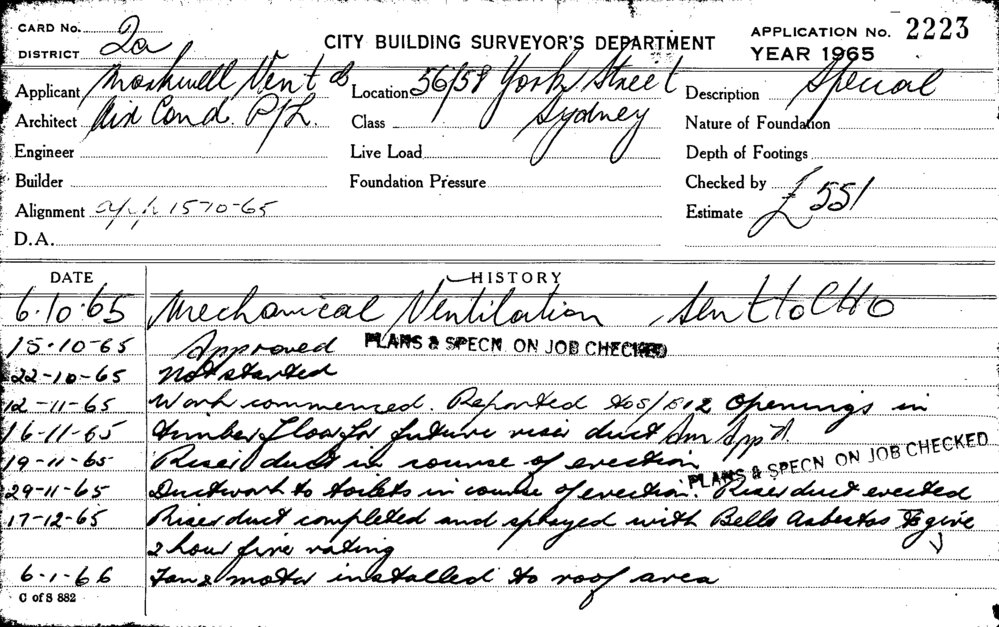 CARD No. 2a
DISTRICT
CITY BUILDING SURVEYOR'S DEPARTMENT
APPLICATION No. 2223
YEAR 1965
Applicant Mashwell Vent &
Location 56/58 York Street
Description Special
Architect Air Cond. P/L.
Class Sydney
Nature of Foundation
Engineer
Live Load
Depth of Footings
Builder
Foundation Pressure
Checked by
Alignment 1570-65
Estimate £551
D.A.
DATE HISTORY
6.10.65 Mechanical Ventilation Sent to CHO
15-10-65 Approved PLANS & SPECN. ON JOB CHECKED
22-10-65 Not started
12-11-65 Work commenced. Reported 2 openings in
16-11-65 timber floor for future riser duct
19-11-65 Riser duct in course of erection PLANS & SPECN ON JOB CHECKED
29-11-65 Ductwork to toilets in course of erection. Riser duct erected
17-12-65 Riser duct completed and sprayed with Bells Asbestos to give
2 hour fire rating
6-1-66 Fan & motor installed to roof area
C of S 882